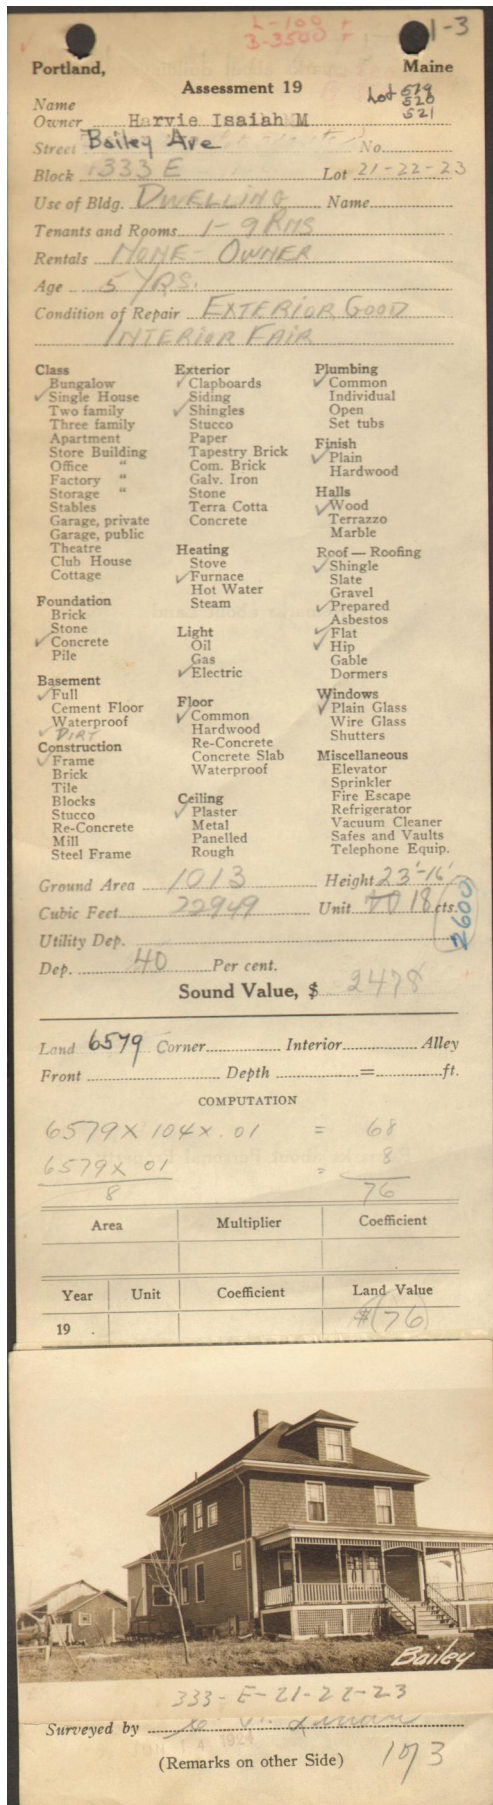 L-100 +
B-3500 +
1-3
Portland, Maine
Assessment 19
Lot 519
520
521
Name
Owner Harvie Isaiah M
Street Bailey Ave No.
Block 333 E Lot 21-22-23
Use of Bldg. DWELLING Name
Tenants and Rooms 1-9 RMS
Rentals NONE - OWNER
Age 5 YRS.
Condition of Repair EXTERIOR GOOD
INTERIOR FAIR
Class
✓ Bungalow
✓ Single House
Two family
Three family
Apartment
Store Building
Office "
Factory "
Storage "
Stables
Garage, private
Garage, public
Theatre
Club House
Cottage
Foundation
Brick
Stone
✓ Concrete
Pile
Basement
✓ Full
Cement Floor
Waterproof
✓ DIRT
Construction
✓ Frame
Brick
Tile
Blocks
Stucco
Re-Concrete
Mill
Steel Frame
Exterior
✓ Clapboards
Siding
✓ Shingles
Stucco
Paper
Tapestry Brick
Com. Brick
Galv. Iron
Stone
Terra Cotta
Concrete
Heating
Stove
✓ Furnace
Hot Water
Steam
Light
Oil
Gas
✓ Electric
Floor
✓ Common
Hardwood
Re-Concrete
Concrete Slab
Waterproof
Ceiling
✓ Plaster
Metal
Panelled
Rough
Plumbing
✓ Common
Individual
Open
Set tubs
Finish
✓ Plain
Hardwood
Halls
✓ Wood
Terrazzo
Marble
Roof — Roofing
✓ Shingle
Slate
Gravel
✓ Prepared
Asbestos
✓ Flat
✓ Hip
Gable
Dormers
Windows
✓ Plain Glass
Wire Glass
Shutters
Miscellaneous
Elevator
Sprinkler
Fire Escape
Refrigerator
Vacuum Cleaner
Safes and Vaults
Telephone Equip.
Ground Area 1013 Height 23'-16'
Cubic Feet 22949 Unit 18 cts.
2600
Utility Dep.
Dep. 40 Per cent.
Sound Value, $ 2478
Land 6579 Corner Interior Alley
Front Depth = ft.
COMPUTATION
6579 X 104 X .01 = 68
6579 X 01 = 8
8 76
Area Multiplier Coefficient
Year Unit Coefficient Land Value
19 $ 76
Bailey
333-E-21-22-23
Surveyed by
(Remarks on other Side) 1073